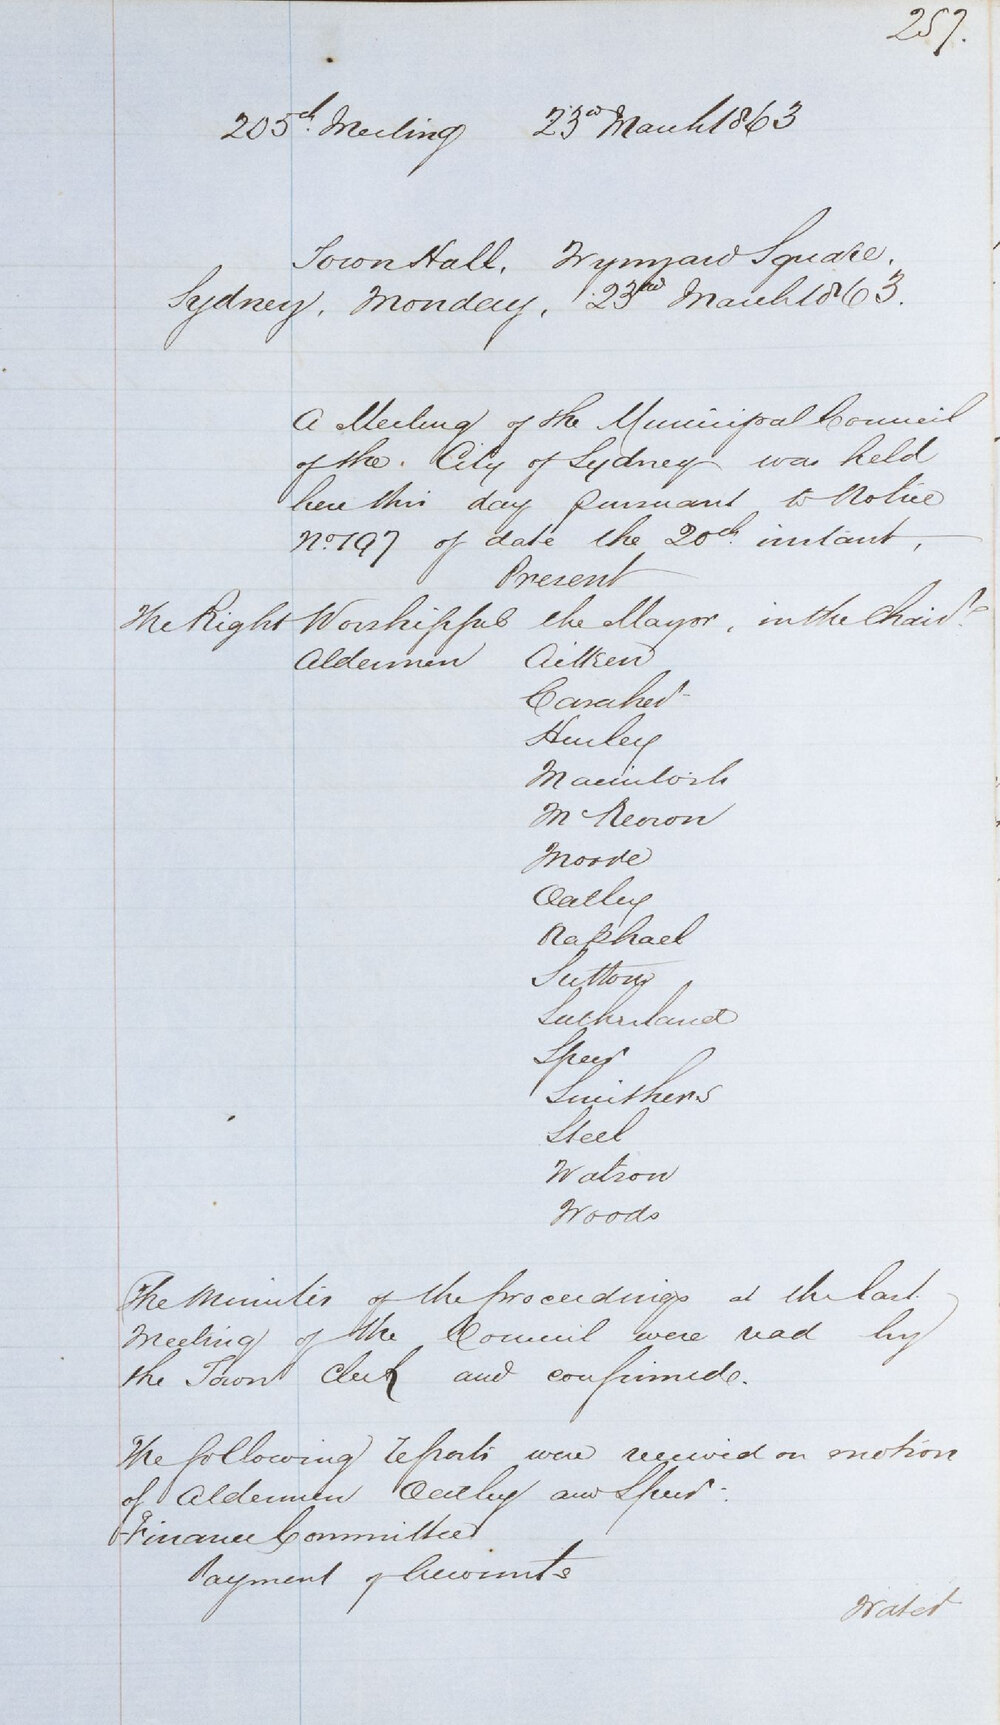 257.
205th Meeting 23rd March 1863
Town Hall, Wynyard Square,
Sydney, Monday, 23rd March 1863.
A Meeting of the Municipal Council
of the City of Sydney was held
here this day pursuant to Notice
No. 197 of date the 20th instant,
Present
The Right Worshipful the Mayor, in the Chair.
Aldermen Aitken
Caraher
Hurley
Macintosh
McKeown
Moore
Oatley
Raphael
Sutton
Sutherland
Speer
Smithers
Steel
Watson
Woods
The Minutes of the proceedings at the last
Meeting of the Council were read by
the Town Clerk and confirmed.
The following reports were received on motion
of Aldermen Oatley and Speer:
Finance Committee
Payment of Accounts
Water